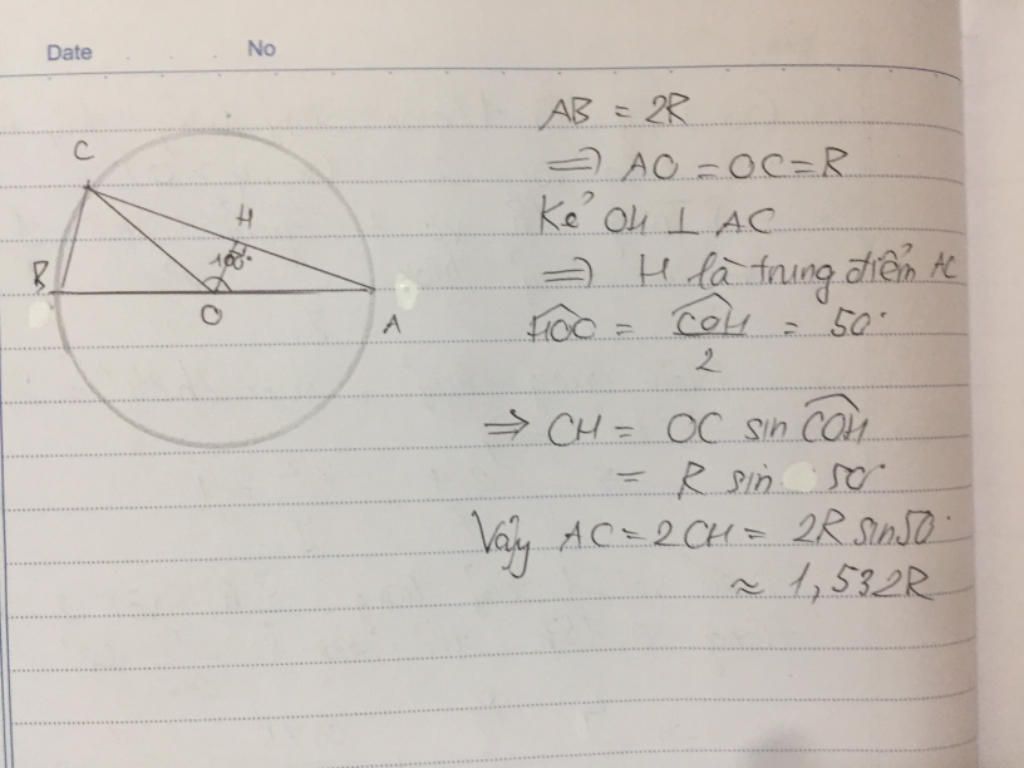 Date No
C
H
100°
B
O
A
AB = 2R
=> AO = OC = R
Kẻ OH ⊥ AC
=> H là trung điểm AC
\widehat{HOC} = \frac{\widehat{COH}}{2} = 50°
=> CH = OC sin \widehat{COH}
= R sin 50°
Vậy AC = 2CH = 2R sin50°
≈ 1,532R